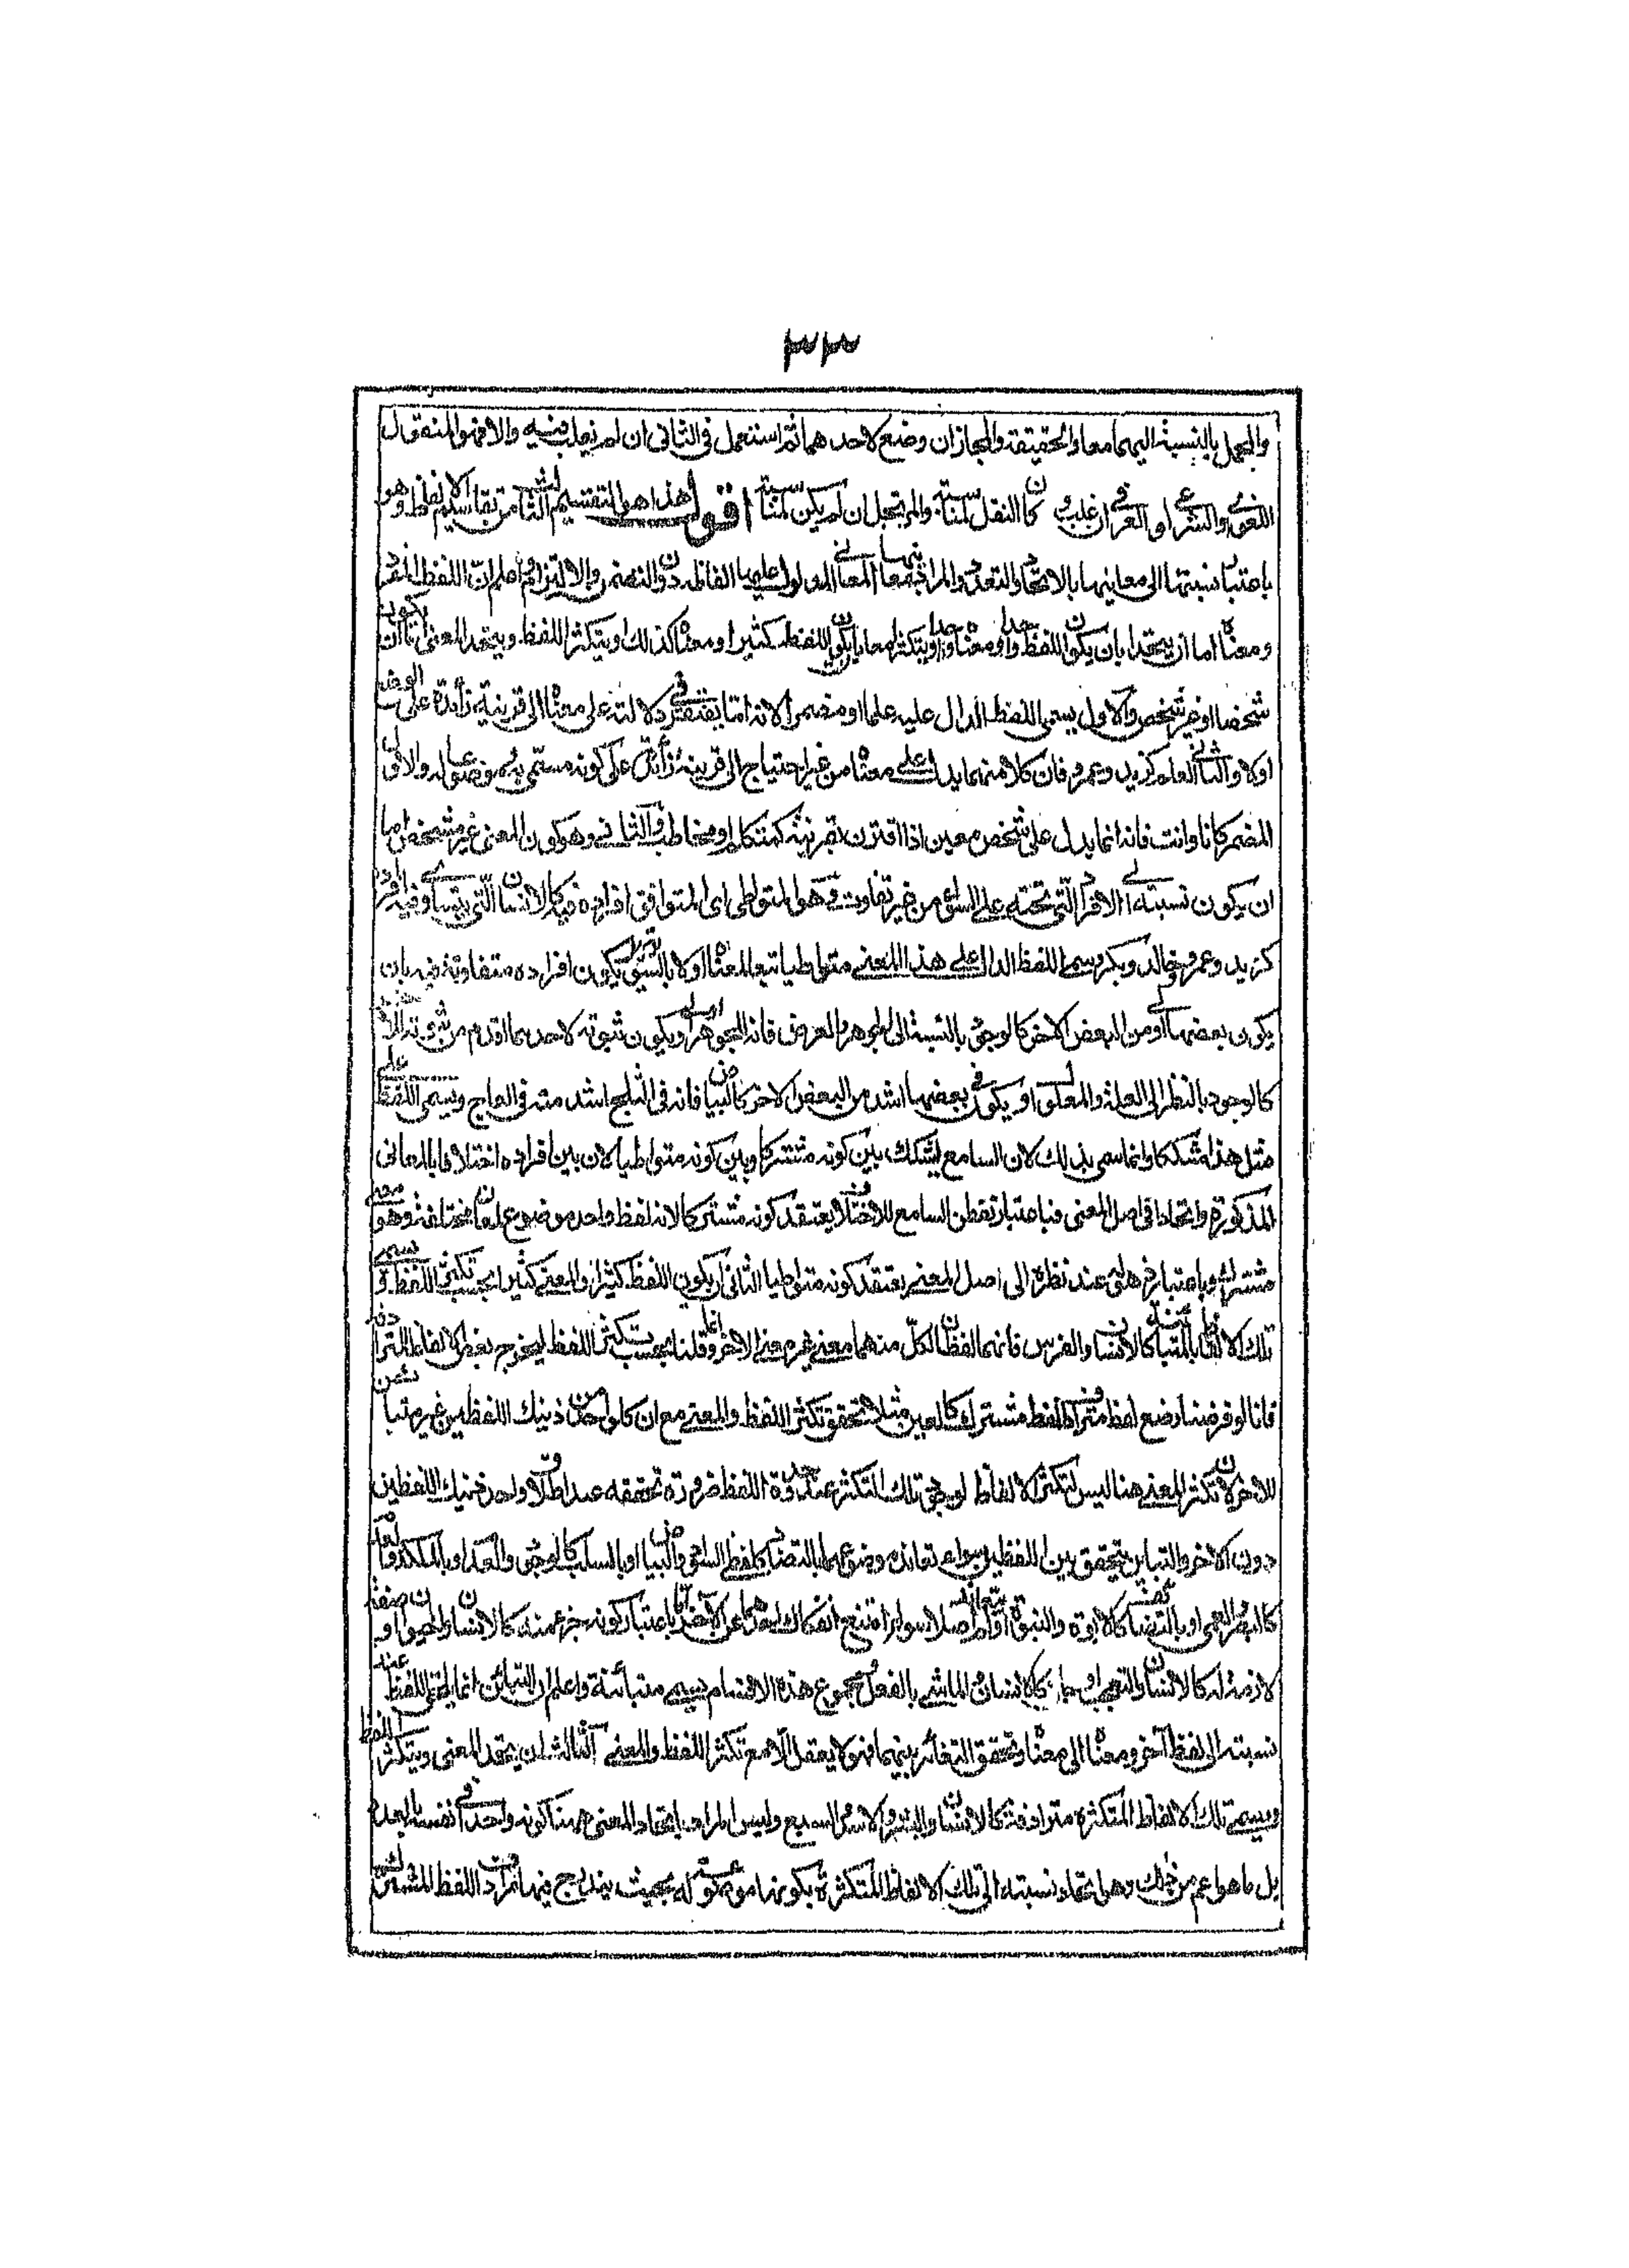 ٣٣
والمجمل بالنسبة اليهما معا والحقيقة والمجاز ان وضع لاحدهما ثم استعمل في الثاني ان لم يغلب فيه والا فهو المنقول
اللغوي والشرعي او العرفي ان غلب وكان النقل لمناسبة والمرتجل ان لم يكن لمناسبة اقول هذا هو التقسيم الثالث من تقاسيم الالفاظ وهو
باعتبار نسبتها الى معانيها بالاتحاد والتعدد والمراد بمعانيها المعاني المدلول عليها الفاظه دون التضمن والالتزام واعلم ان اللفظ المفرد
ومعناه اما ان يتحدا بان يكون اللفظ واحدا ومعناه واحدا او يتكثرا معا بان يكون اللفظ كثيرا ومعناه كذلك او يتكثر اللفظ ويتحد المعنى اما ان يكون
شخصا او غير شخص والاول يسمى اللفظ الدال عليه علما او مضمرا لانه اما يفتقر في دلالته على معناه الى قرينة زائدة على الوضع
اولا والثاني العلم كزيد وعمرو فان كلا منهما يدل على معناه من غير احتياج الى قرينة زائدة على كونه مسمى به موضوعا له والاول
المضمر كانا وانت فانه انما يدل على شخص معين اذا اقترن بقرينة كمتكلم او مخاطب والثاني وهو كون المعنى غير مشخص اما
ان يكون نسبته الى الافراد التي تحته على السواء من غير تفاوت وهو المتواطي اي المتوافق افراده فيه كالانسان الذي يتساوى فيه افراده
كزيد وعمرو وخالد وبكر وسمي اللفظ الدال على هذا المعنى متواطيا تبعا لمعناه اولا بالسوية بل يكون افراده متفاوتة فيه بان
يكون بعضها اولى من البعض الاخر كالوجود بالنسبة الى الجوهر والعرض فانه للجوهر اولى او يكون ثبوته لاحدهما اقدم من ثبوته للاخر
كالوجود بالنظر الى العلة والمعلول او يكون في بعضها اشد من البعض الاخر كالبياض فانه في الثلج اشد منه في العاج ويسمى اللفظ على
مثل هذا مشككا وانما سمي بذلك لان السامع يشكك بين كونه مشتركا وبين كونه متواطيا لان بين افراده اختلافا بالمعاني
المذكورة واتحادا في اصل المعنى فباعتبار تفطن السامع للاختلاف يعتقد كونه مشتركا لانه لفظ واحد موضوع لمعان مختلفة وهو معنى
المشترك وباعتبار ذهوله عند نظره الى اصل المعنى يعتقد كونه متواطيا الثاني ان يكون اللفظ كثيرا والمعنى كثيرا بحسب تكثر اللفظ ويسمى
تلك الالفاظ بالمتباينة كالانسان والفرس فانهما لفظان لكل منهما معنى غير معنى الاخر وانما قلنا بحسب تكثر اللفظ ليخرج بعض الالفاظ المترادفة
فانا لو فرضنا وضع لفظ مترادف للفظ مشترك كالعين مثلا تحقق تكثر اللفظ والمعنى مع ان كل واحد من ذينك اللفظين غير متبائن
للاخر لان تكثر المعنى هنا ليس لتكثر الالفاظ لوجود تلك التكثر عند وحدة اللفظ ضرورة تحققه عند اطلاق واحد من ذينك اللفظين
دون الاخر والتباين يتحقق بين اللفظين سواء تعاند موضوعهما بالتضاد كلفظ السواد والبياض او بالسلب كالوجود والعدم او بالملكة والعدم
كالبصر والعمى او بالتضايف كالابوة والبنوة او لم يتعاندا اصلا سواء امتنع انفكاك احدهما عن الاخر اما باعتبار كونه جزء منه كالانسان والحيوان او صفة
لازمة له كالانسان والتعجب او جاز كالانسان والماشي بالفعل مجموع هذه الاقسام يسمى متبائنة واعلم ان التبائن انما يلحق اللفظ عند
نسبته الى لفظ اخر ومعناه الى معناه وتحقق التغائر بينهما فهو لا يعقل الا مع تكثر اللفظ والمعنى الثالث ان يتحد المعنى ويتكثر اللفظ
ويسمى تلك الالفاظ المتكثرة مترادفة كالانسان والبشر والاسد والسبع وليس المراد باتحاد المعنى ههنا كونه واحدا في نفسه بالعدد
بل ما هو اعم من ذلك وهو اتحاد نسبته الى تلك الالفاظ المتكثرة بكونها موضوعة له بحيث يندرج فيها ترادف اللفظ المشترك